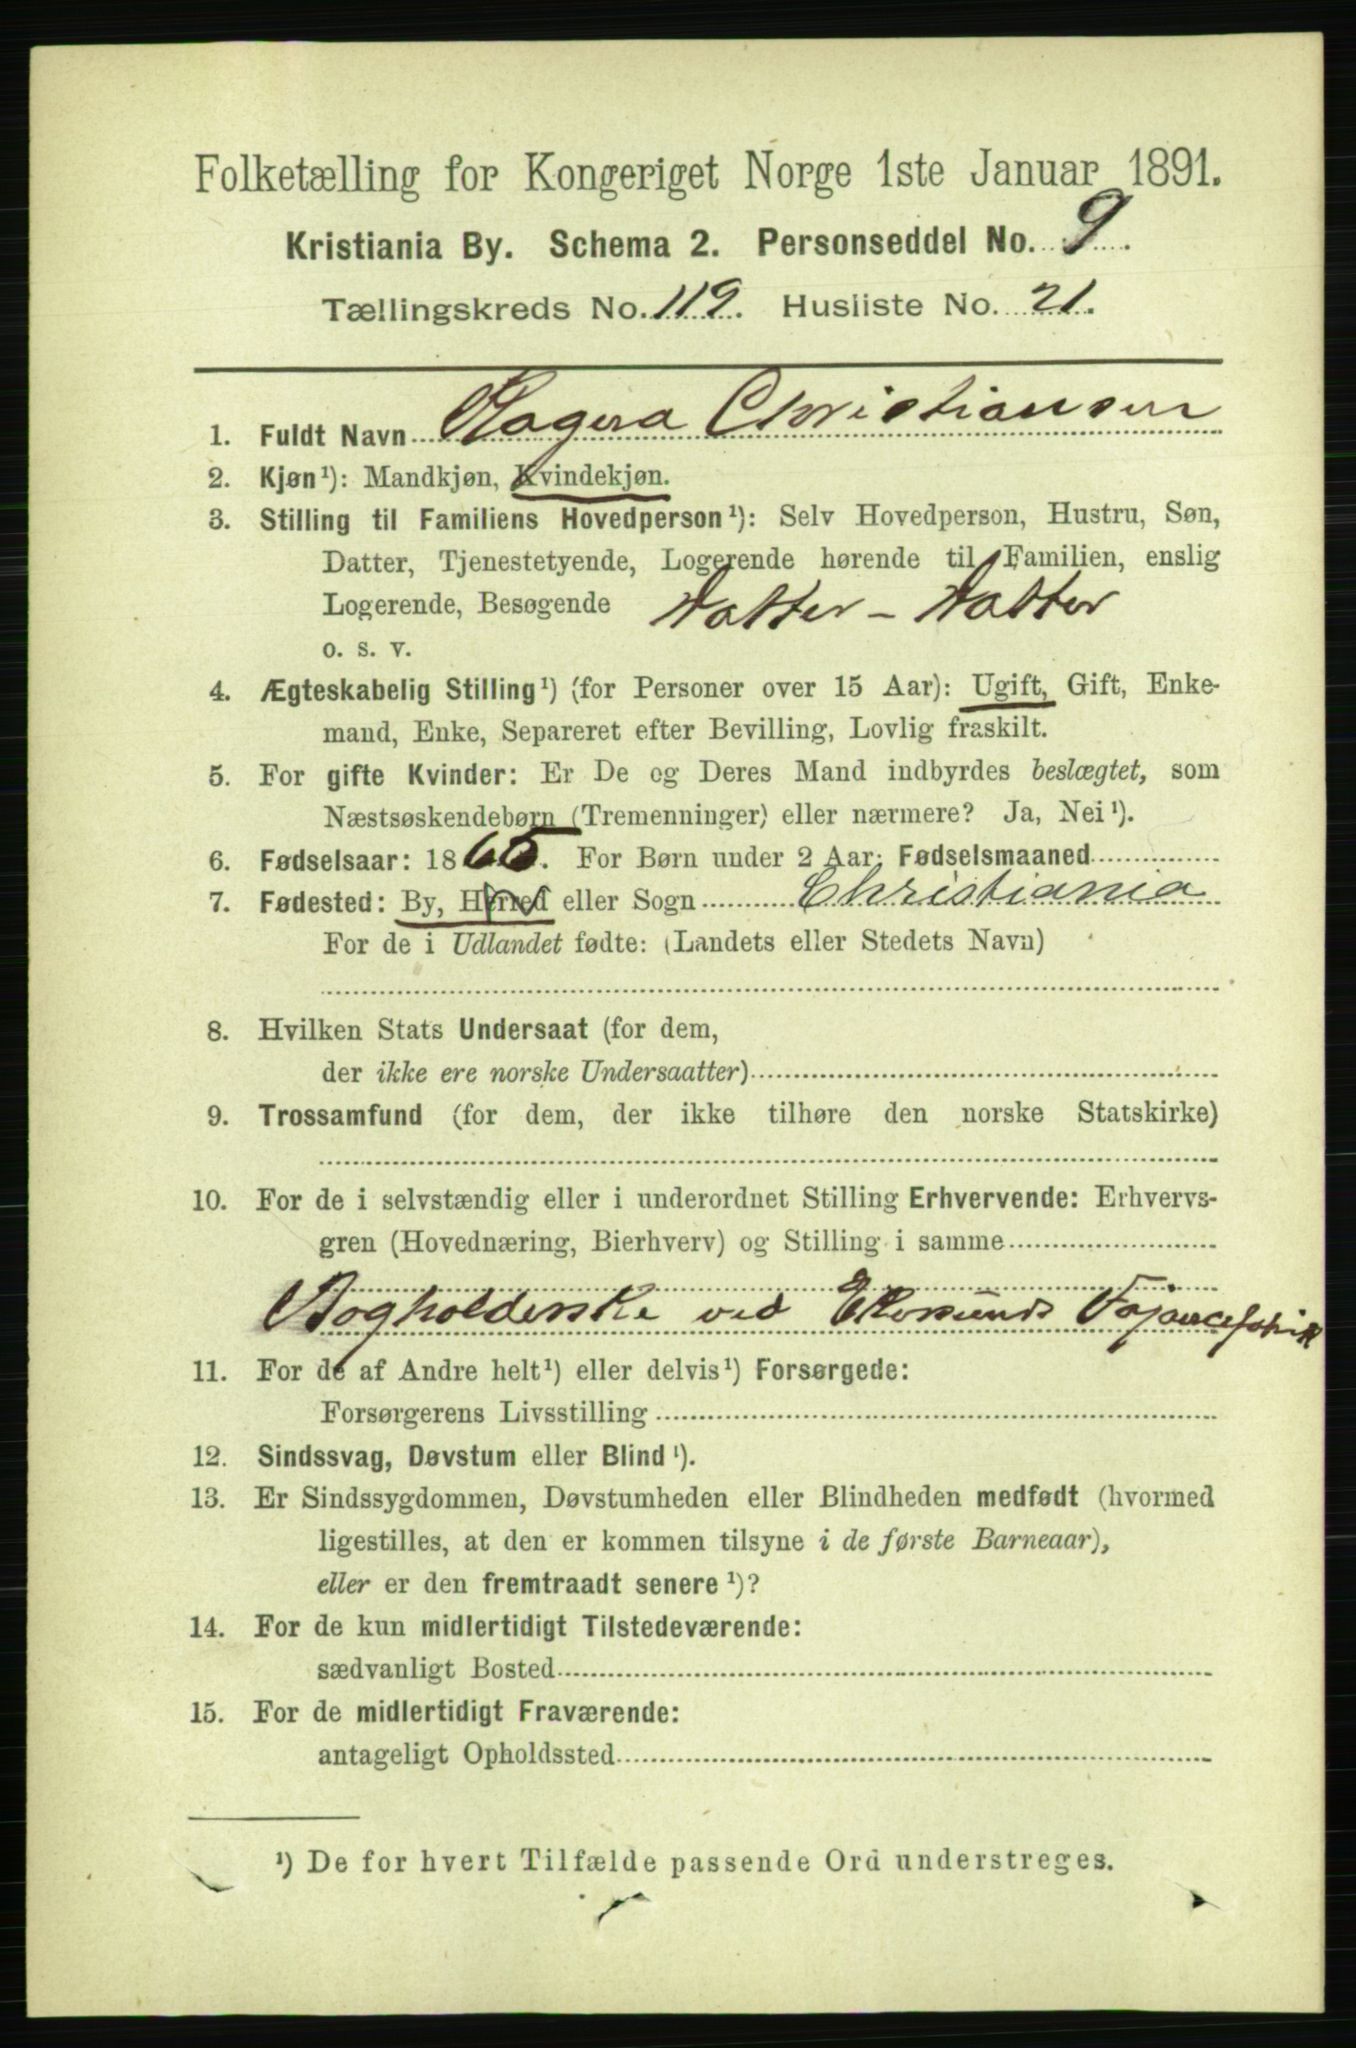 Folketælling for Kongeriget Norge 1ste Januar 1891.
Kristiania By. Schema 2. Personseddel No. 9.
Tællingskreds No. 119. Husliste No. 21.
1. Fuldt Navn Ragna Christiansen
2. Kjøn¹): Mandkjøn, Kvindekjøn.
3. Stilling til Familiens Hovedperson¹): Selv Hovedperson, Hustru, Søn,
Datter, Tjenestetyende, Logerende hørende til Familien, enslig
Logerende, Besøgende Datter - Datter
o. s. v.
4. Ægteskabelig Stilling¹) (for Personer over 15 Aar): Ugift, Gift, Enke-
mand, Enke, Separeret efter Bevilling, Lovlig fraskilt.
5. For gifte Kvinder: Er De og Deres Mand indbyrdes beslægtet, som
Næstsøskendebørn (Tremenninger) eller nærmere? Ja, Nei¹).
6. Fødselsaar: 1865. For Børn under 2 Aar: Fødselsmaaned
7. Fødested: By, Herred eller Sogn Christiania
For de i Udlandet fødte: (Landets eller Stedets Navn)
8. Hvilken Stats Undersaat (for dem,
der ikke ere norske Undersaatter)
9. Trossamfund (for dem, der ikke tilhøre den norske Statskirke)
10. For de i selvstændig eller i underordnet Stilling Erhvervende: Erhvervs-
gren (Hovednæring, Bierhverv) og Stilling i samme
Bogholderske ved Egersunds Fajancefabrik
11. For de af Andre helt¹) eller delvis¹) Forsørgede:
Forsørgerens Livsstilling
12. Sindssvag, Døvstum eller Blind¹).
13. Er Sindssygdommen, Døvstumheden eller Blindheden medfødt (hvormed
ligestilles, at den er kommen tilsyne i de første Barneaar),
eller er den fremtraadt senere¹)?
14. For de kun midlertidigt Tilstedeværende:
sædvanligt Bosted
15. For de midlertidigt Fraværende:
antageligt Opholdssted
¹) De for hvert Tilfælde passende Ord understreges.